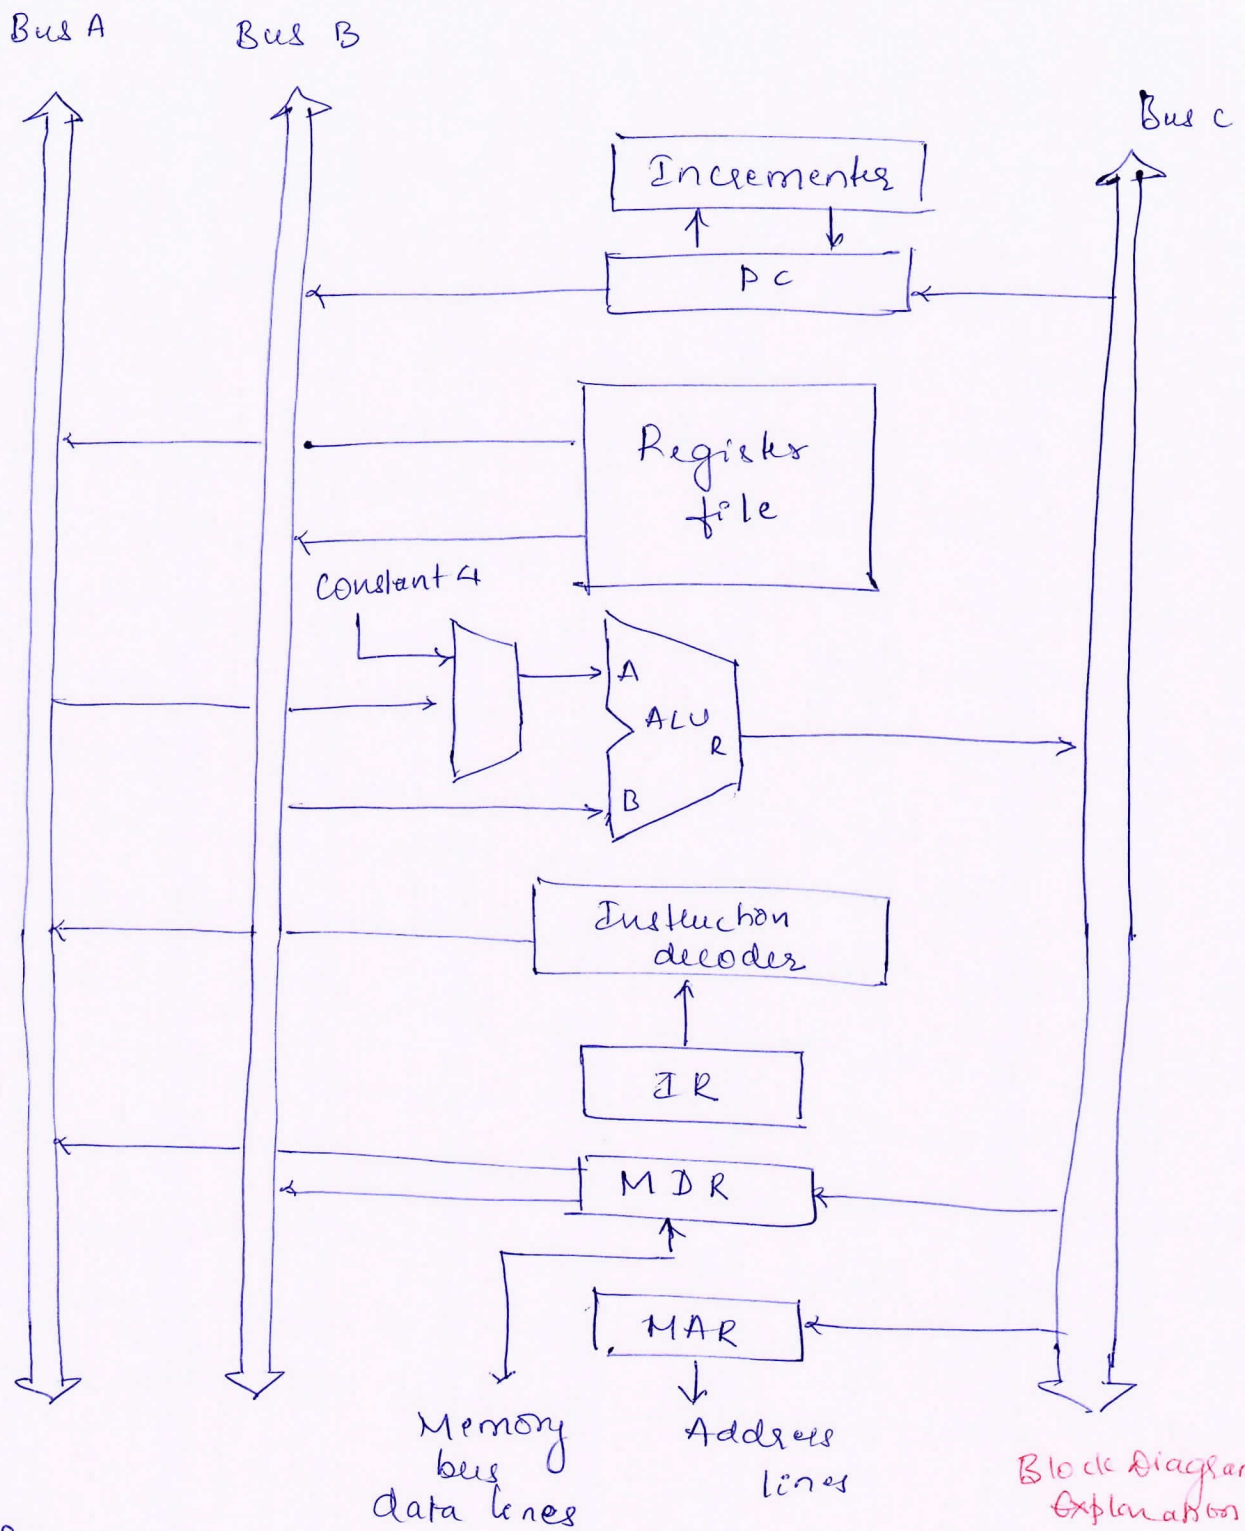 Bus A
Bus B
Bus C
Incrementer
PC
Register
file
Constant 4
A
ALU
R
B
Instruction
decoder
IR
MDR
MAR
Memory
bus
data lines
Address
lines
Block Diagram
Explanation